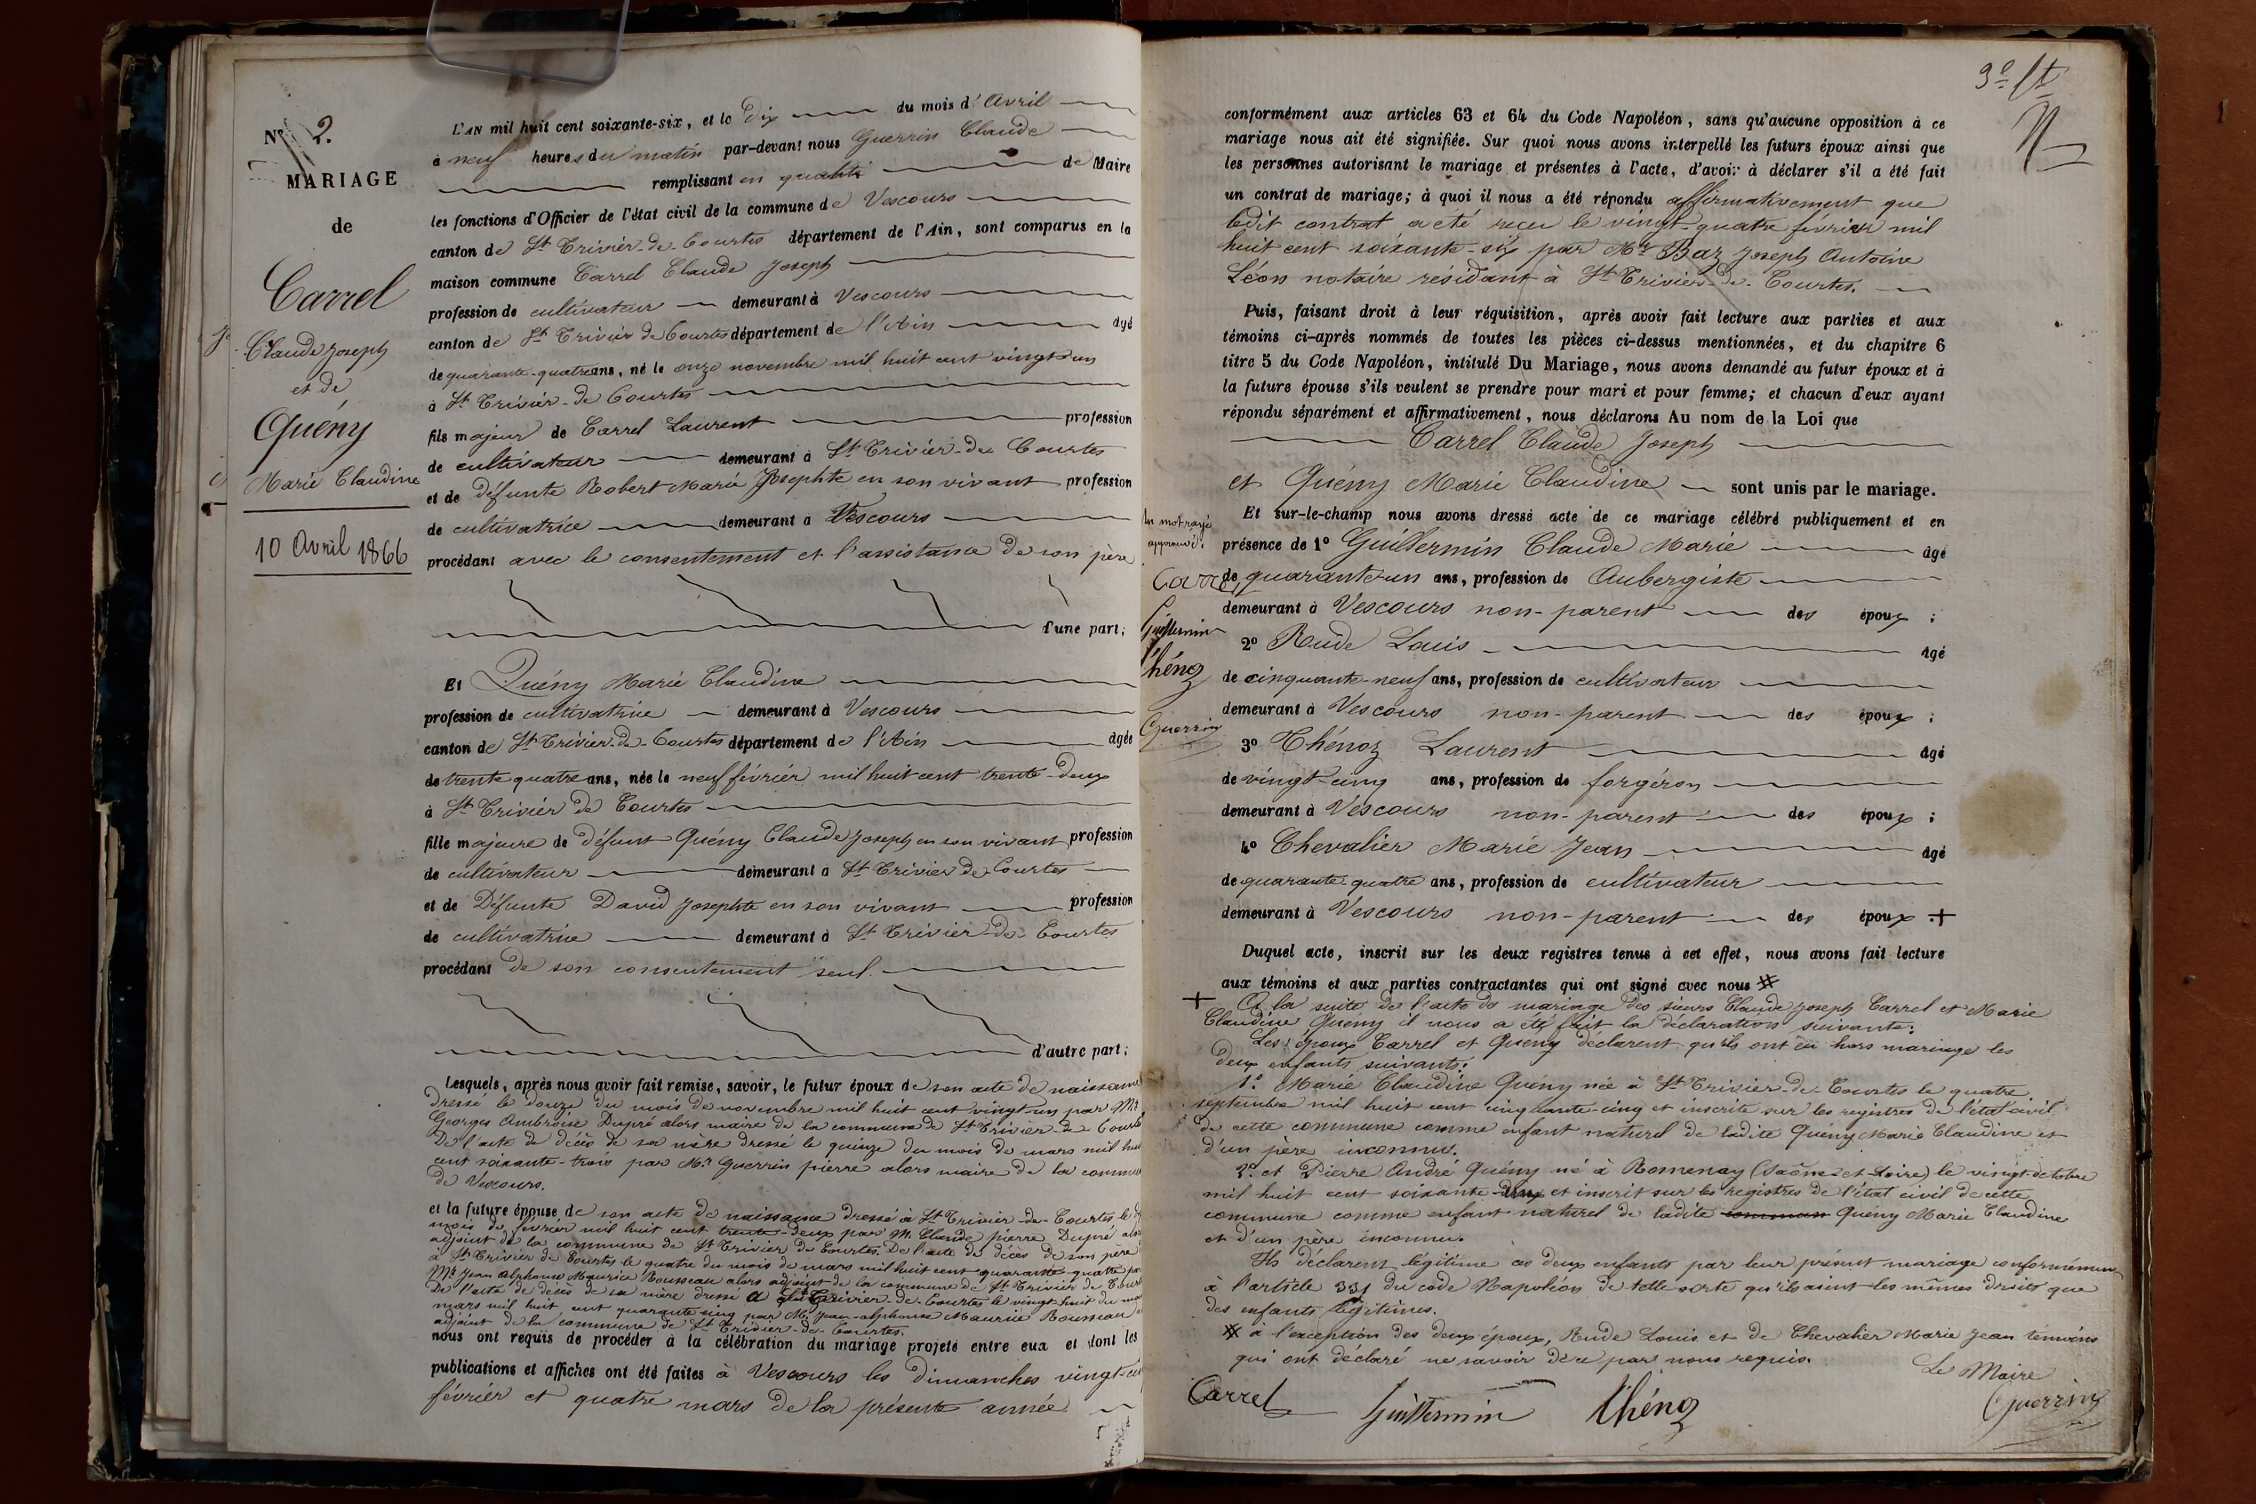 N° 2.
MARIAGE
de
Carrel
Claude Joseph
et de
Quény
Marie Claudine
10 Avril 1866
L'AN mil huit cent soixante-six, et le dix du mois d'Avril
à neuf heures du matin par-devant nous Guerrin Claude
remplissant en qualité de Maire
les fonctions d'Officier de l'état civil de la commune de Vescours
canton de St Trivier-de-Courtes département de l'Ain, sont comparus en la
maison commune Carrel Claude Joseph
profession de cultivateur demeurant à Vescours
canton de St Trivier de Courtes département de l'Ain âgé
de quarante-quatre ans, né le onze novembre mil huit cent vingt-un
à St Trivier-de Courtes
fils majeur de Carrel Laurent profession
de cultivateur demeurant à St Trivier-de Courtes
et de défunte Robert Marie Josephte en son vivant profession
de cultivatrice demeurant à Vescours
procédant avec le consentement et l'assistance de son père
d'une part;
Et Quény Marie Claudine
profession de cultivatrice demeurant à Vescours
canton de St Trivier-de-Courtes département de l'Ain âgée
de trente quatre ans, née le neuf février mil huit cent trente-deux
à St Trivier de Courtes
fille majeure de défunt Quény Claude Joseph en son vivant profession
de cultivateur demeurant à St Trivier de Courtes
et de Défunte David Josephte en son vivant profession
de cultivatrice demeurant à St Trivier-de-Courtes
procédant de son consentement seul.
d'autre part;
Lesquels, après nous avoir fait remise, savoir, le futur époux de son acte de naissance
dressé le douze du mois de novembre mil huit cent vingt-un par Mr
Georges Ambroise Dupré alors maire de la commune de St Trivier-de-Courtes
De l'acte de décès de sa mère dressé le quinze du mois de mars mil huit
cent soixante-trois par Mr Guerrin pierre alors maire de la commune
de Vescours.
et la future épouse de son acte de naissance dressé à St Trivier-de-Courtes le
mois de février mil huit cent trente-deux par M. Claude pierre Dupré alors
adjoint de la commune de St Trivier de Courtes. De l'acte de décès de son père
à St Trivier de Courtes le quatre du mois de mars mil huit cent quarante-quatre par
Mr Jean alphonse Maurice Rousseau alors adjoint de la commune de St Trivier de Courtes
De l'acte de décès de sa mère dressé à St Trivier-de-Courtes le vingt-huit du mois
mars mil huit cent quarante cinq par Mr Jean-alphonse Maurice Rousseau
adjoint de la commune de St Trivier-de-Courtes.
nous ont requis de procéder à la célébration du mariage projeté entre eux et dont les
publications et affiches ont été faites à Vescours les dimanches vingt-cinq
février et quatre mars de la présente année
3e ft
conformément aux articles 63 et 64 du Code Napoléon, sans qu'aucune opposition à ce
mariage nous ait été signifiée. Sur quoi nous avons interpellé les futurs époux ainsi que
les personnes autorisant le mariage et présentes à l'acte, d'avoir à déclarer s'il a été fait
un contrat de mariage; à quoi il nous a été répondu affirmativement que
ledit contrat a été reçu le vingt-quatre février mil
huit cent soixante-six par Mr Baz Joseph Antoine
Léon notaire résidant à St Trivier-de-Courtes.
Puis, faisant droit à leur réquisition, après avoir fait lecture aux parties et aux
témoins ci-après nommés de toutes les pièces ci-dessus mentionnées, et du chapitre 6
titre 5 du Code Napoléon, intitulé Du Mariage, nous avons demandé au futur époux et à
la future épouse s'ils veulent se prendre pour mari et pour femme; et chacun d'eux ayant
répondu séparément et affirmativement, nous déclarons Au nom de la Loi que
Carrel Claude Joseph
et Quény Marie Claudine sont unis par le mariage.
Et sur-le-champ nous avons dressé acte de ce mariage célébré publiquement et en
présence de 1° Guillermin Claude Marie âgé
de quarante-un ans, profession de Aubergiste
demeurant à Vescours non-parent des époux;
2° Rude Louis âgé
de cinquante-neuf ans, profession de cultivateur
demeurant à Vescours non-parent des époux;
3° Thénoz Laurent âgé
de vingt-cinq ans, profession de forgéron
demeurant à Vescours non-parent des époux;
4° Chevalier Marie Jean âgé
de quarante-quatre ans, profession de cultivateur
demeurant à Vescours non-parent des époux +
un mot rayé
approuvé.
Carrel
Guillermin
Thénoz
Guerrin
Duquel acte, inscrit sur les deux registres tenus à cet effet, nous avons fait lecture
aux témoins et aux parties contractantes qui ont signé avec nous #
+ A la suite de l'acte de mariage des sieurs Claude Joseph Carrel et Marie
Claudine Quény il nous a été fait la déclaration suivante:
Les époux Carrel et Quény déclarent qu'ils ont eu hors mariage les
deux enfants suivants:
1° Marie Claudine Quény née à St Trivier-de-Courtes le quatre
septembre mil huit cent cinquante-cinq et inscrite sur les registres de l'état civil
de cette commune comme enfant naturel de ladite Quény Marie Claudine et
d'un père inconnu.
2° et Pierre André Quény né à Romenay (Saône-et-Loire) le vingt octobre
mil huit cent soixante-deux et inscrit sur les registres de l'état civil de cette
commune comme enfant naturel de ladite commun Quény Marie Claudine
et d'un père inconnu.
Ils déclarent légitime ces deux enfants par leur présent mariage conformément
à l'article 331 du code Napoléon de telle sorte qu'ils aient les mêmes droits que
des enfants légitimes.
# à l'exception des deux époux, Rude Louis et de Chevalier Marie Jean témoins
qui ont déclaré ne savoir de ce par nous requis.
Le Maire
Carrel Guillermin Thénoz Guerrin